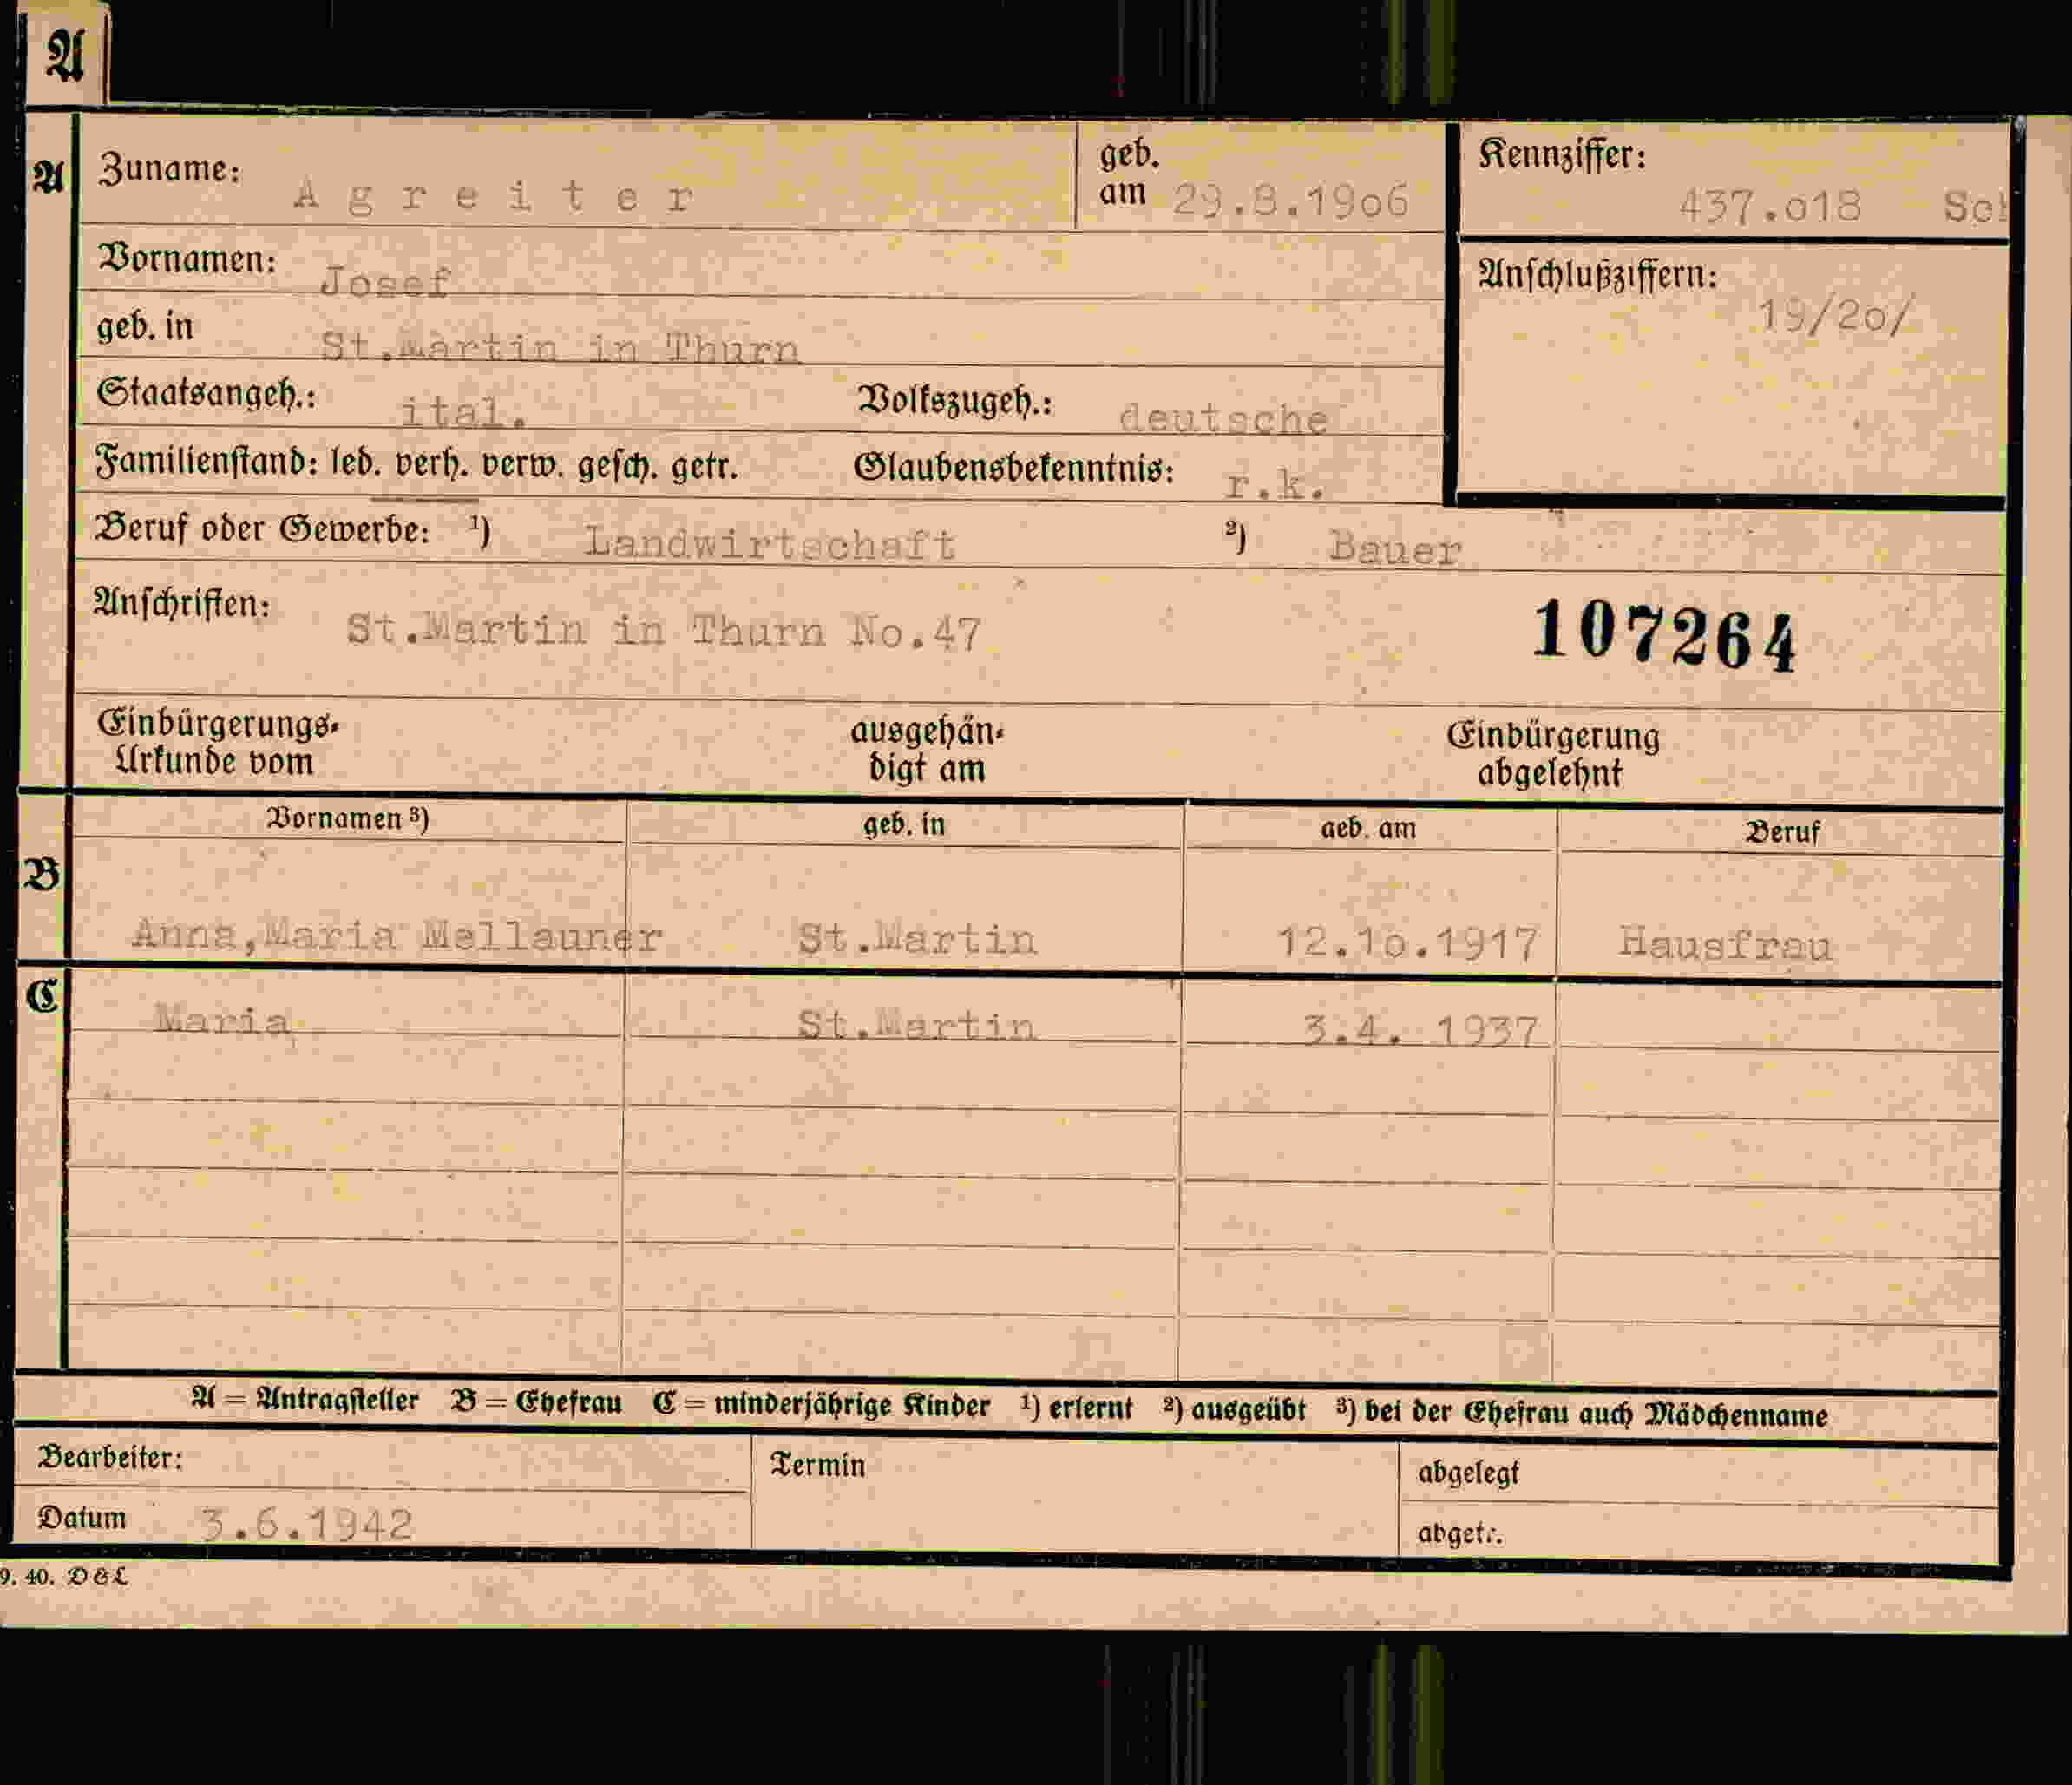 A
A
Zuname: Agreiter geb. am 29.8.1906 Kennziffer: 437.018 Sch
Vornamen: Josef Anschlußziffern: 19/20/
geb. in St.Martin in Thurn
Staatsangeh.: ital. Volkszugeh.: deutsche
Familienstand: led. verh. verw. gesch. getr. Glaubensbekenntnis: r.k.
Beruf oder Gewerbe: ¹) Landwirtschaft ²) Bauer
Anschriften: St.Martin in Thurn No.47 107264
Einbürgerungs-Urkunde vom ausgehändigt am Einbürgerung abgelehnt
Vornamen ³) geb. in geb. am Beruf
B Anna,Maria Mellauner St.Martin 12.10.1917 Hausfrau
C Maria St.Martin 3.4. 1937
A = Antragsteller B = Ehefrau C = minderjährige Kinder ¹) erlernt ²) ausgeübt ³) bei der Ehefrau auch Mädchenname
Bearbeiter: Termin abgelegt
Datum 3.6.1942 abgetr.
9. 40. D & L